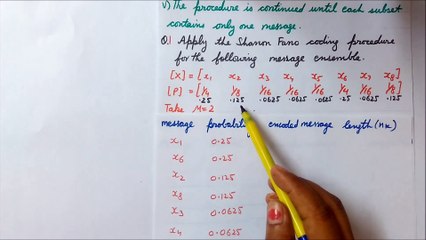 v) The procedure is continued until each subset
contains only one message.
Q.1 Apply the Shanon Fano coding procedure
for the following message ensemble.
[X] = [x1 x2 x3 x4 x5 x6 x7 x8]
[P] = [1/4 1/8 1/16 1/16 1/16 1/4 1/16 1/8]
.25 .125 .0625 .0625 .0625 .25 .0625 .125
Take M=2
message probability encoded message length (nk)
x1 0.25
x6 0.25
x2 0.125
x8 0.125
x3 0.0625
x4 0.0625